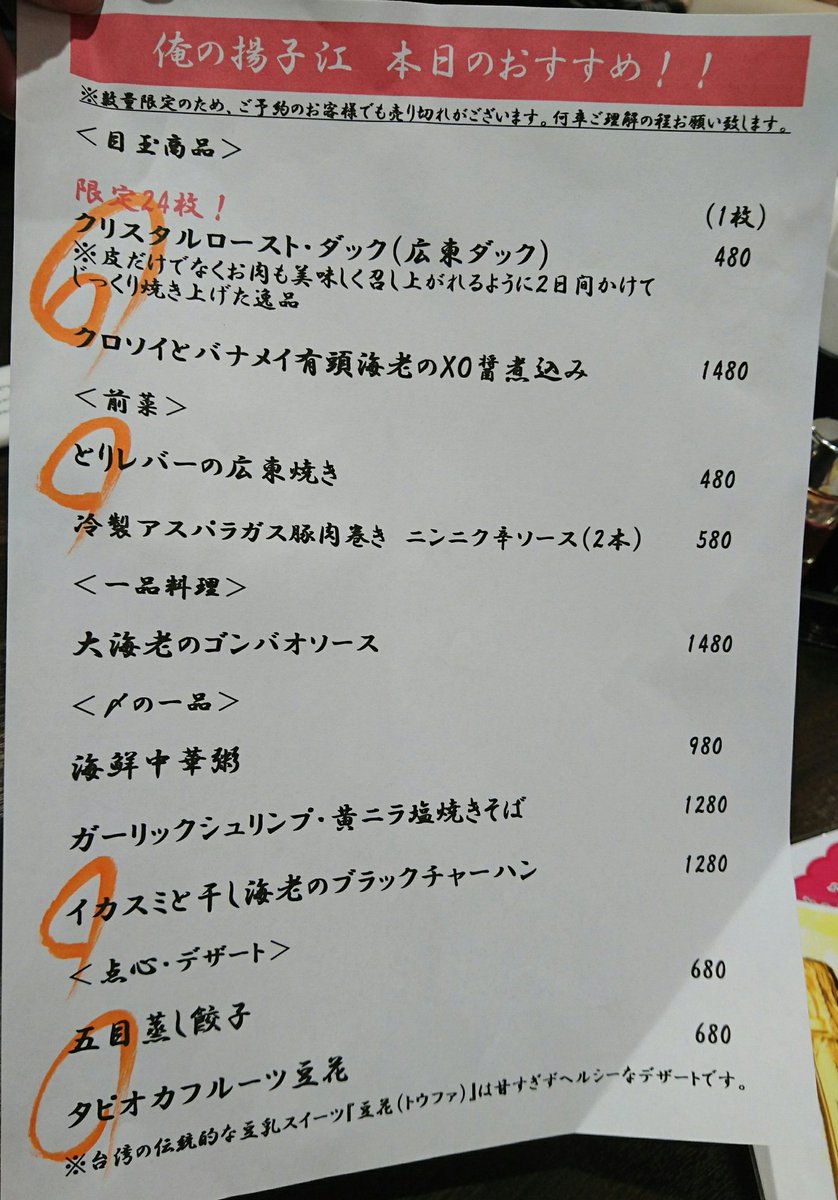 俺の揚子江 本日のおすすめ!!
※数量限定のため、ご予約のお客様でも売り切れがございます。何卒ご理解の程お願い致します。
<目玉商品>
限定24枚! (1枚)
クリスタルロースト・ダック(広東ダック) 480
※皮だけでなくお肉も美味しく召し上がれるように2日間かけて
じっくり焼き上げた逸品
クロソイとバナメイ有頭海老のXO醤煮込み 1480
<前菜>
とりレバーの広東焼き 480
冷製アスパラガス豚肉巻き ニンニク辛ソース(2本) 580
<一品料理>
大海老のゴンバオソース 1480
<〆の一品>
海鮮中華粥 980
ガーリックシュリンプ・黄ニラ塩焼きそば 1280
イカスミと干し海老のブラックチャーハン 1280
<点心・デザート>
五目蒸し餃子 680
タピオカフルーツ豆花 680
※台湾の伝統的な豆乳スイーツ『豆花(トウファ)』は甘すぎずヘルシーなデザートです。